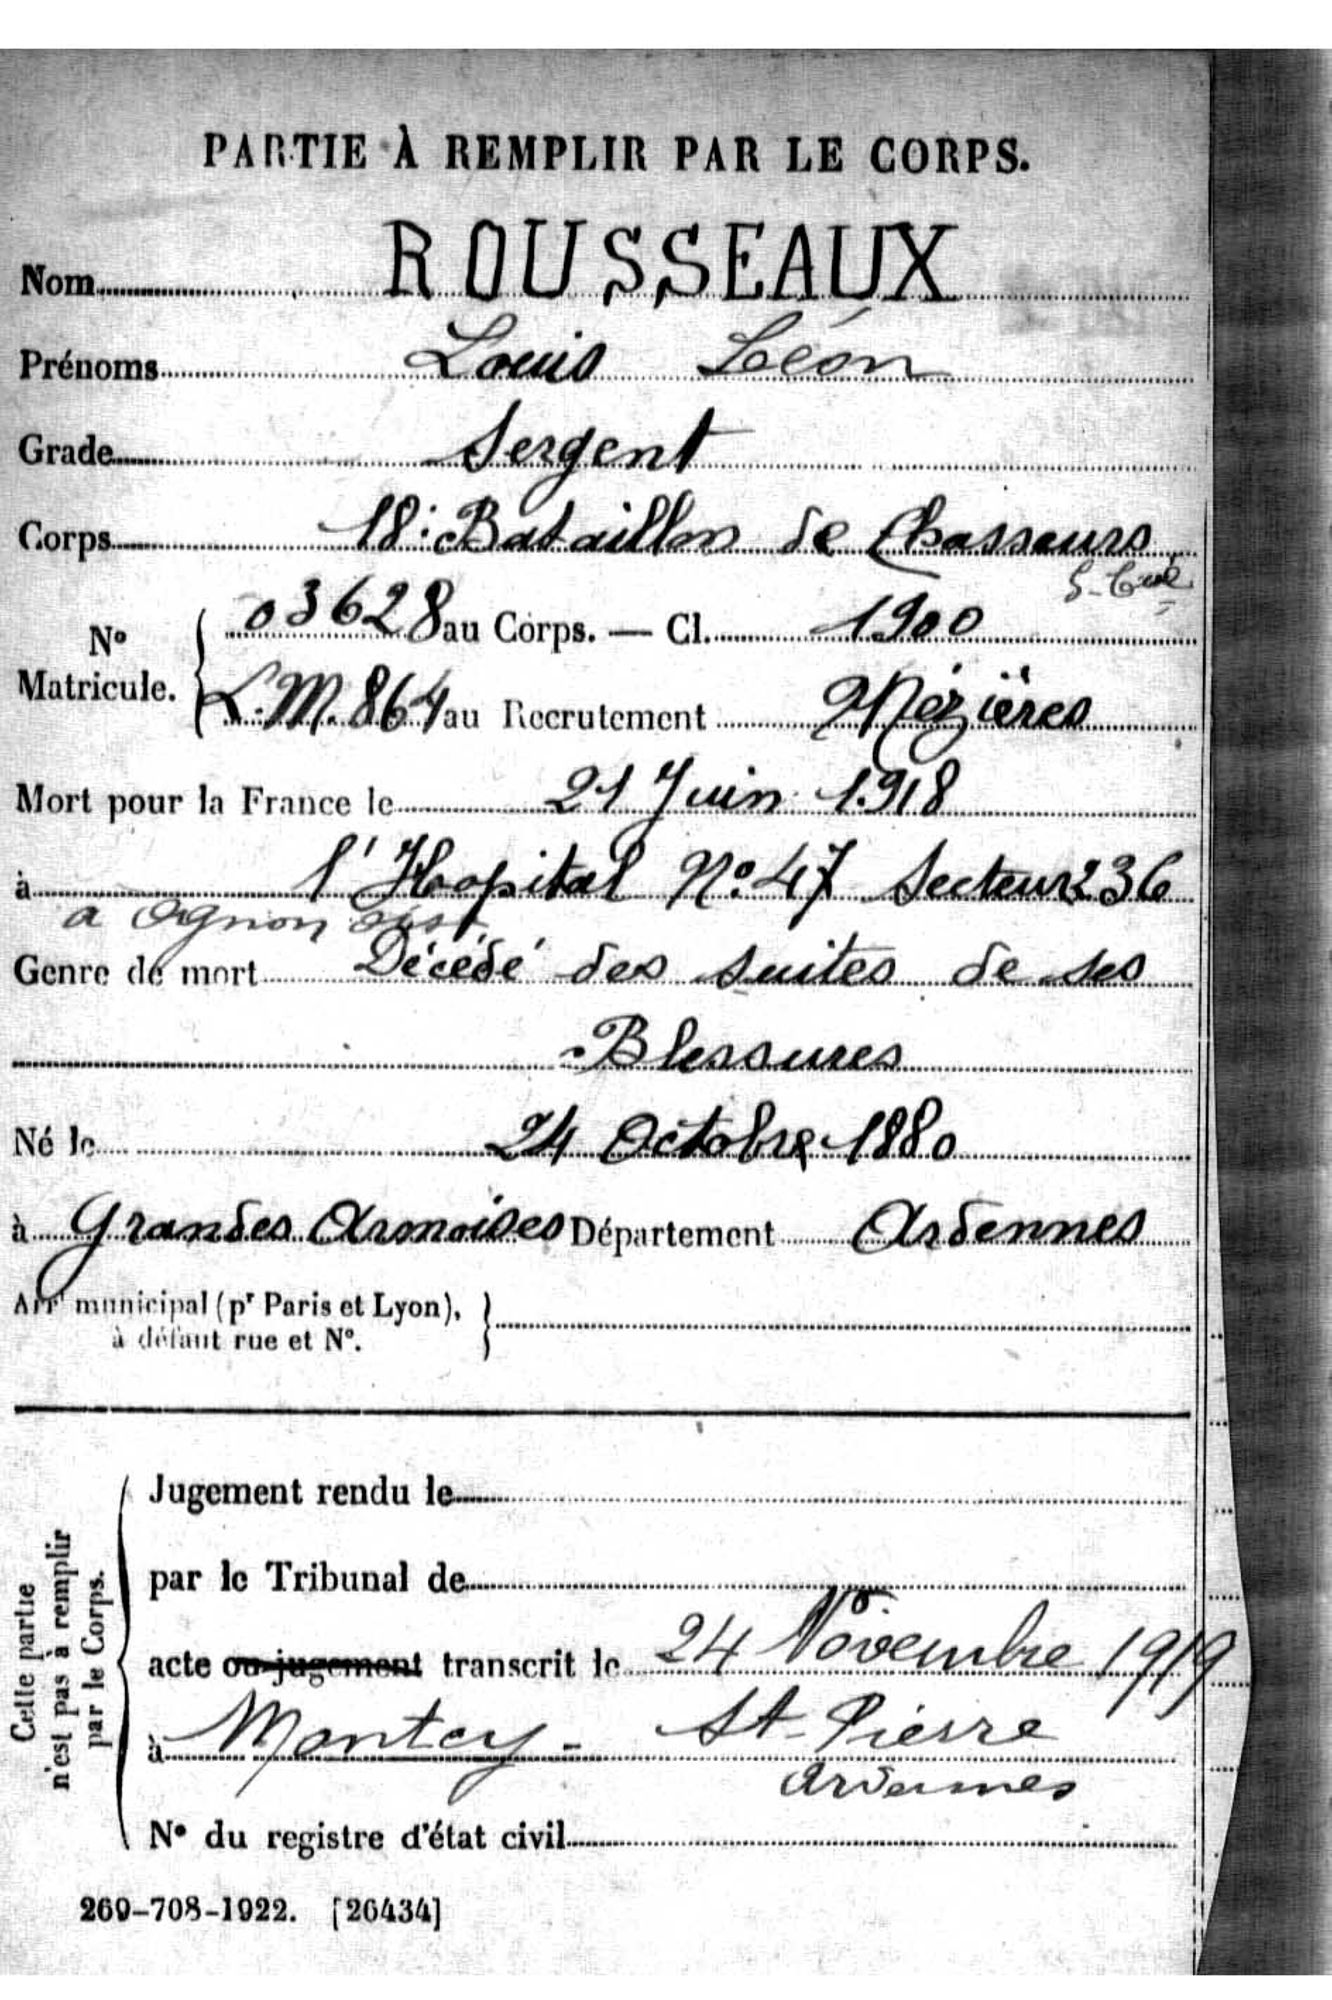 PARTIE À REMPLIR PAR LE CORPS.
Nom ROUSSEAUX
Prénoms Louis Léon
Grade Sergent
Corps 18e Bataillon de Chasseurs
N° Matricule. 03628 au Corps. — Cl. 1900
L.M. 864 au Recrutement Mézières
Mort pour la France le 21 Juin 1918
à l'Hopital N° 47 Secteur 236
a Ognon
Genre de mort Décédé des suites de ses
Blessures
Né le 24 Octobre 1880
à Grandes Armoises Département Ardennes
Arrt municipal (pr Paris et Lyon),
à défaut rue et N°.
Cette partie
n'est pas à remplir
par le Corps.
Jugement rendu le
par le Tribunal de
acte ou jugement transcrit le 24 Novembre 1919
à Montcy - St-Pierre
Ardennes
N° du registre d'état civil
269-708-1922. [26434]